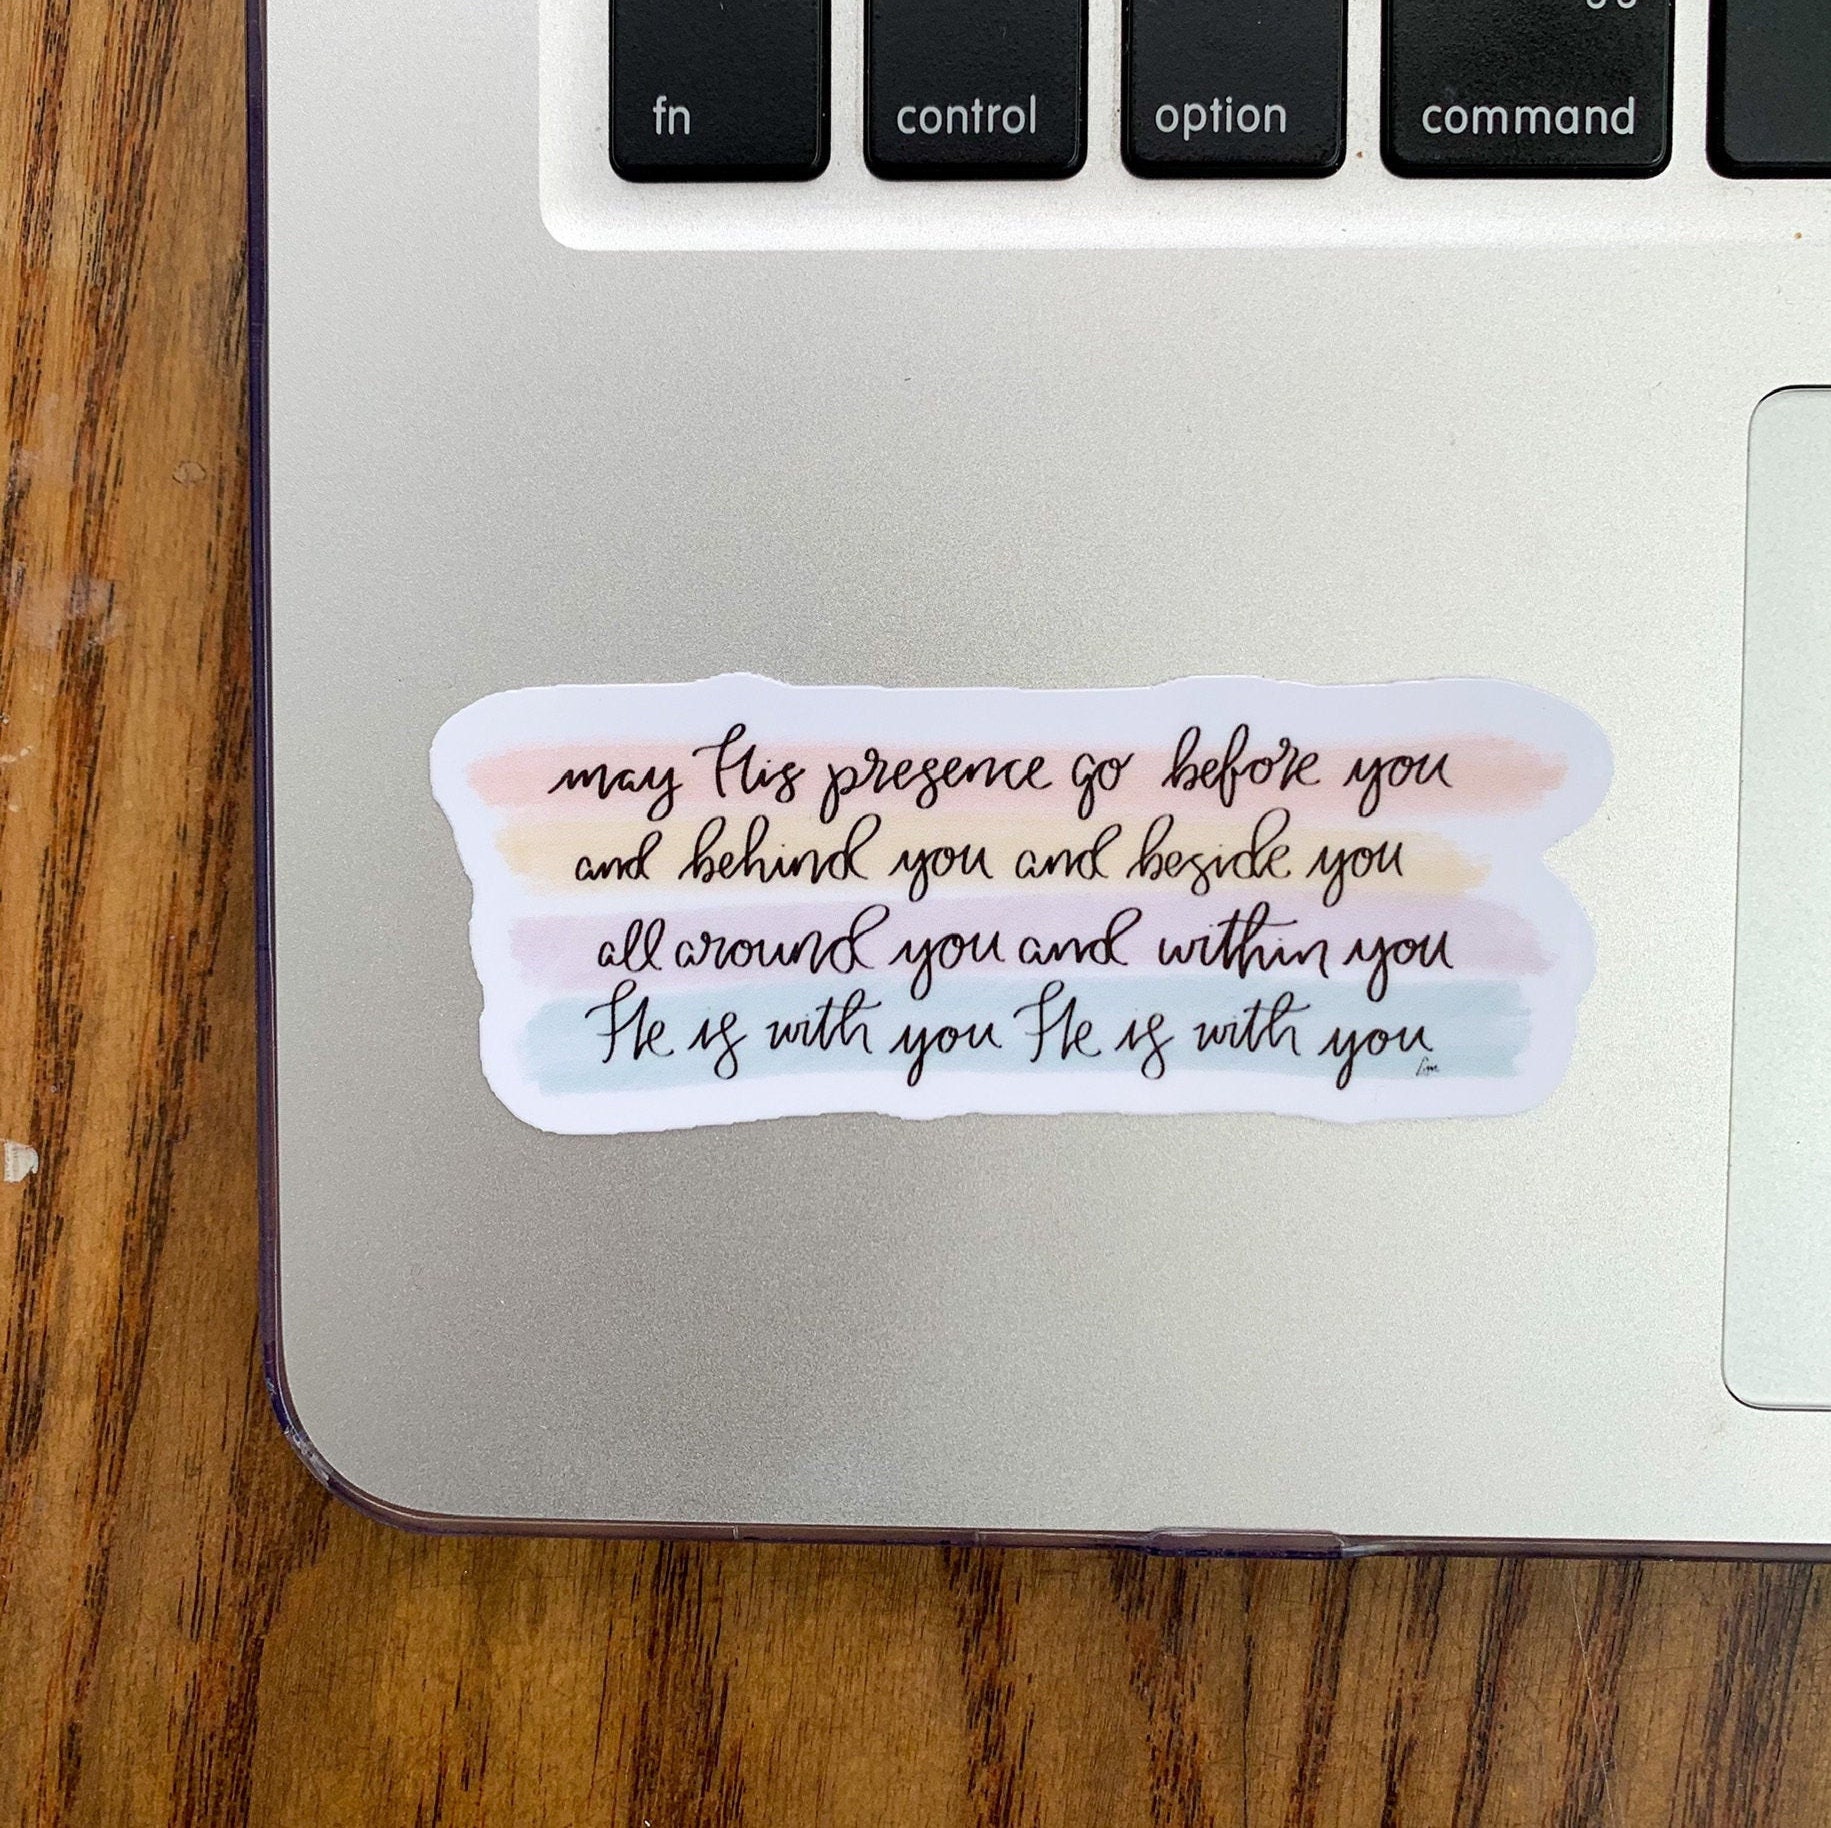 fn control option command
may His presence go before you
and behind you and beside you
all around you and within you
He is with you He is with you